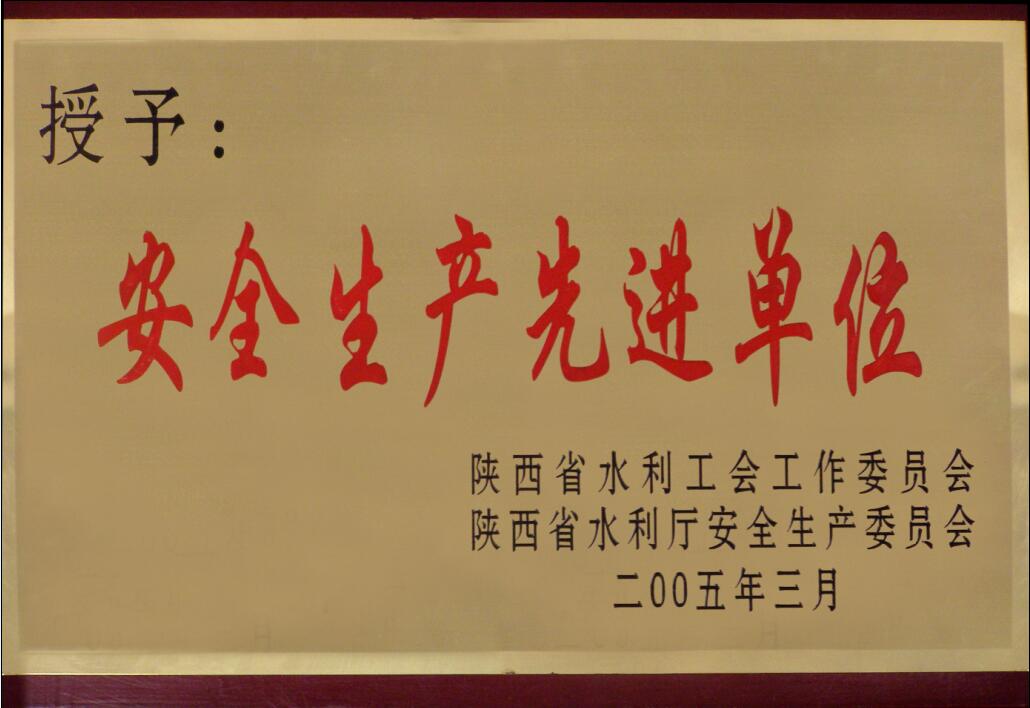 授予：
安全生产先进单位
陕西省水利工会工作委员会
陕西省水利厅安全生产委员会
二00五年三月